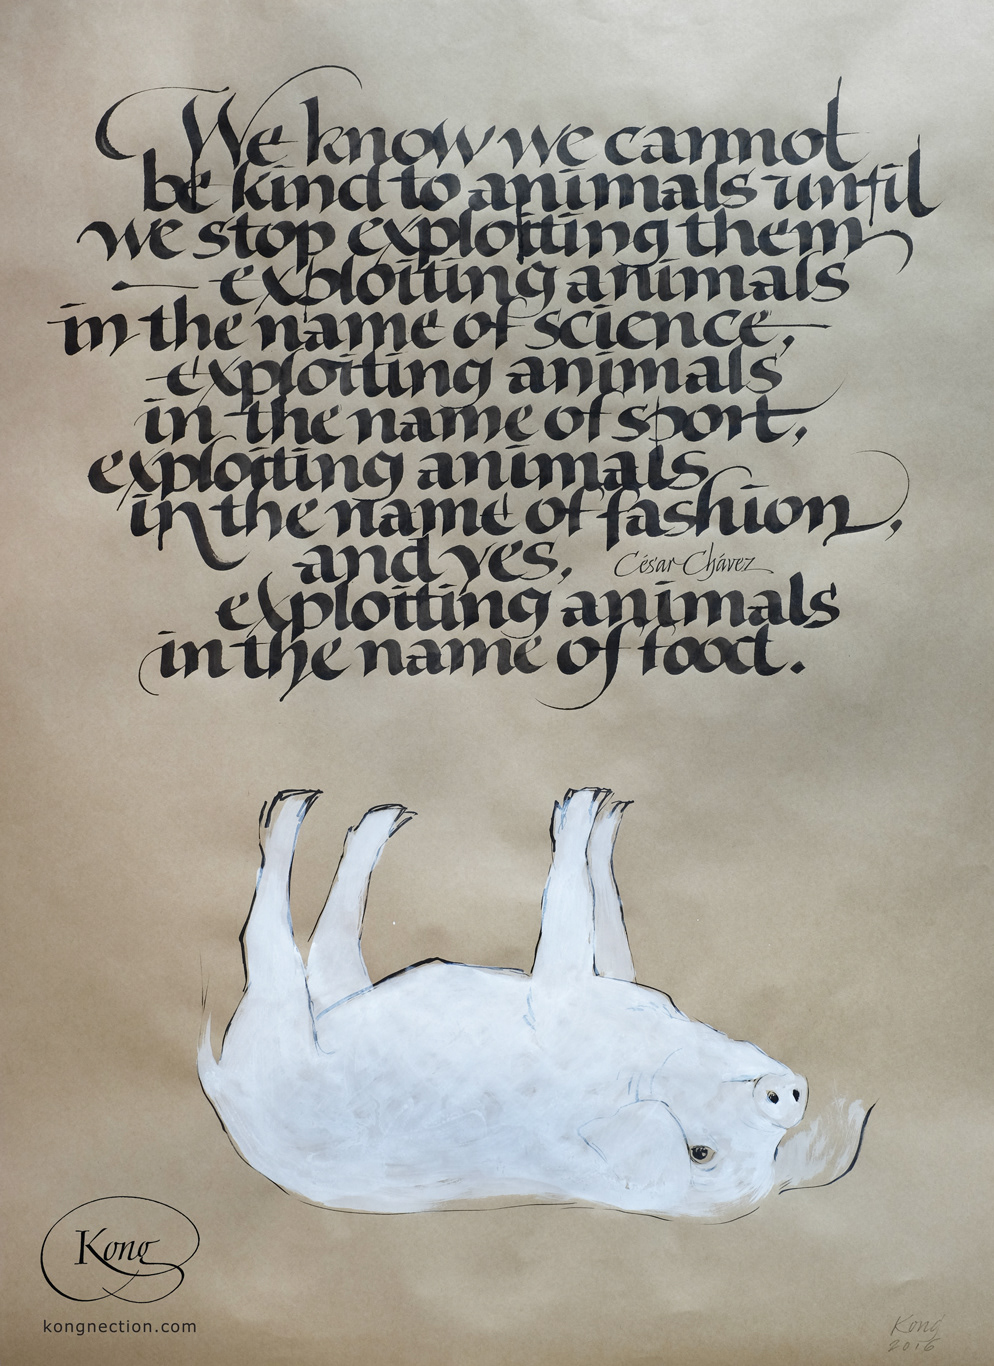 We know we cannot
be kind to animals until
we stop exploiting them
— exploiting animals
in the name of science,
exploiting animals
in the name of sport,
exploiting animals
in the name of fashion,
and yes,
César Chávez
exploiting animals
in the name of food.
Kong
kongnection.com
Kong
2016